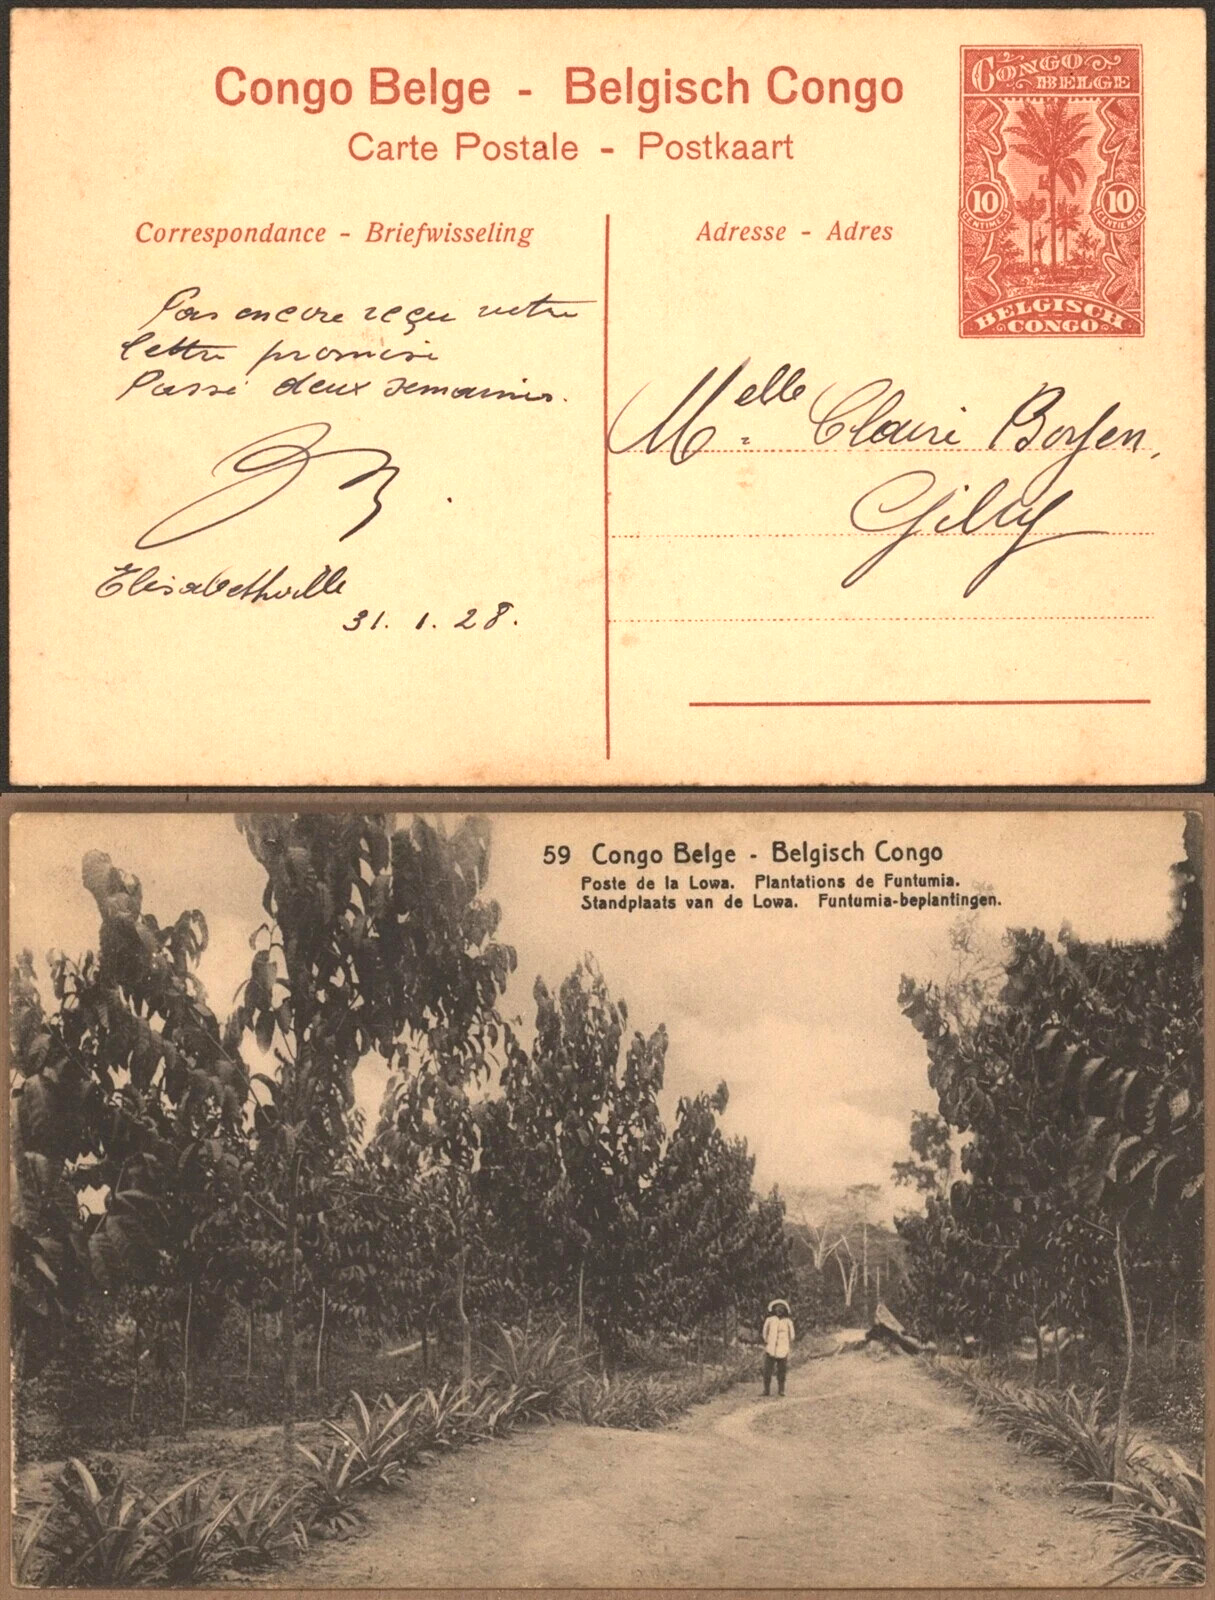 Congo Belge - Belgisch Congo
Carte Postale - Postkaart
CONGO
BELGE
10
CENTIMES
10
CENTIEMEN
BELGISCH
CONGO
Correspondance - Briefwisseling
Adresse - Adres
Pas encore reçu votre
lettre promise
Passé deux semaines.
Elisabethville
31. 1. 28.
Melle Claire
Gilly
59 Congo Belge - Belgisch Congo
Poste de la Lowa. Plantations de Funtumia.
Standplaats van de Lowa. Funtumia-beplantingen.